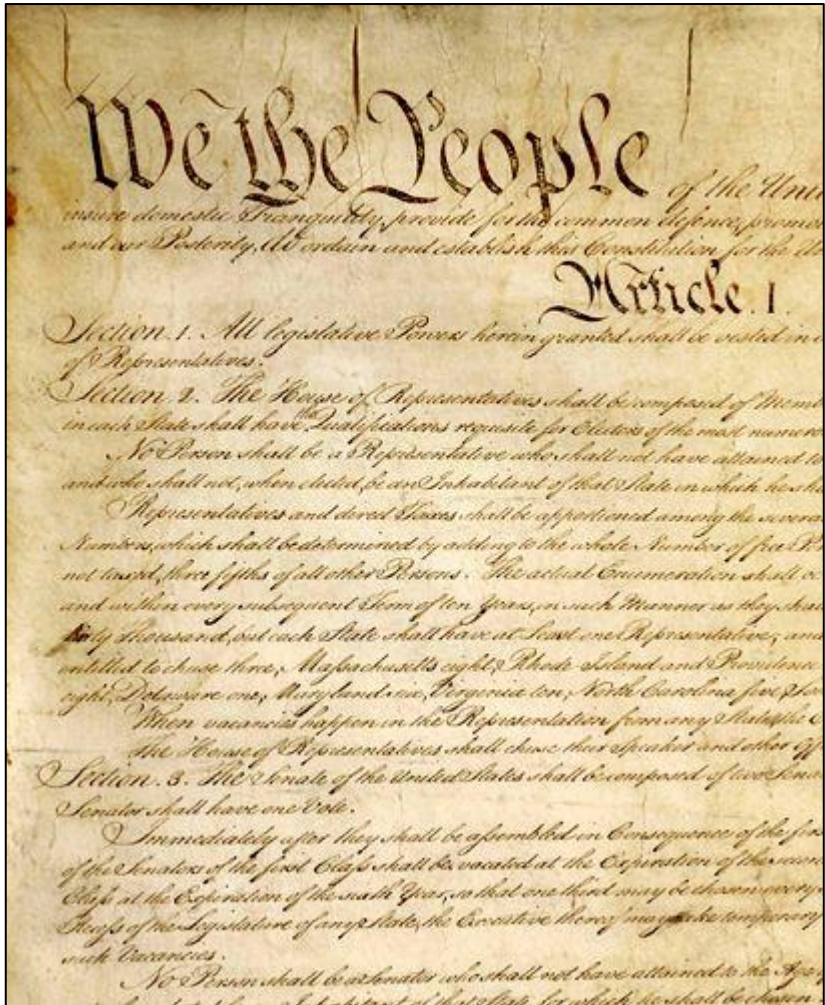 We the People of the Uni
insure domestic Tranquility, provide for the common defence, promo
and our Posterity, do ordain and establish this Constitution for the Un
Article. I.
Section. 1. All legislative Powers herein granted shall be vested in a
of Representatives.
Section. 2. The House of Representatives shall be composed of Memb
in each State shall have the Qualifications requisite for Electors of the most numero
No Person shall be a Representative who shall not have attained to
and who shall not, when elected, be an Inhabitant of that State in which he sha
Representatives and direct Taxes shall be apportioned among the severa
Numbers, which shall be determined by adding to the whole Number of free Per
not taxed, three fifths of all other Persons. The actual Enumeration shall be
and within every subsequent Term of ten Years, in such Manner as they shal
thirty Thousand, but each State shall have at Least one Representative; and
entitled to chuse three, Massachusetts eight, Rhode Island and Providence
eight, Delaware one, Maryland six, Virginia ten, North Carolina five,
When vacancies happen in the Representation from any State, the E
the House of Representatives shall chuse their Speaker and other Off
Section. 3. The Senate of the United States shall be composed of two Sena
Senator shall have one Vote.
Immediately after they shall be assembled in Consequence of the firs
of the Senators of the first Class shall be vacated at the Expiration of the secon
Class at the Expiration of the sixth Year, so that one third may be chosen every
Recess of the Legislature of any State, the Executive thereof may make temporary
such Vacancies.
No Person shall be a Senator who shall not have attained to the Age
who shall not, when elected, be an Inhabitant of that State for which he shall be chosen